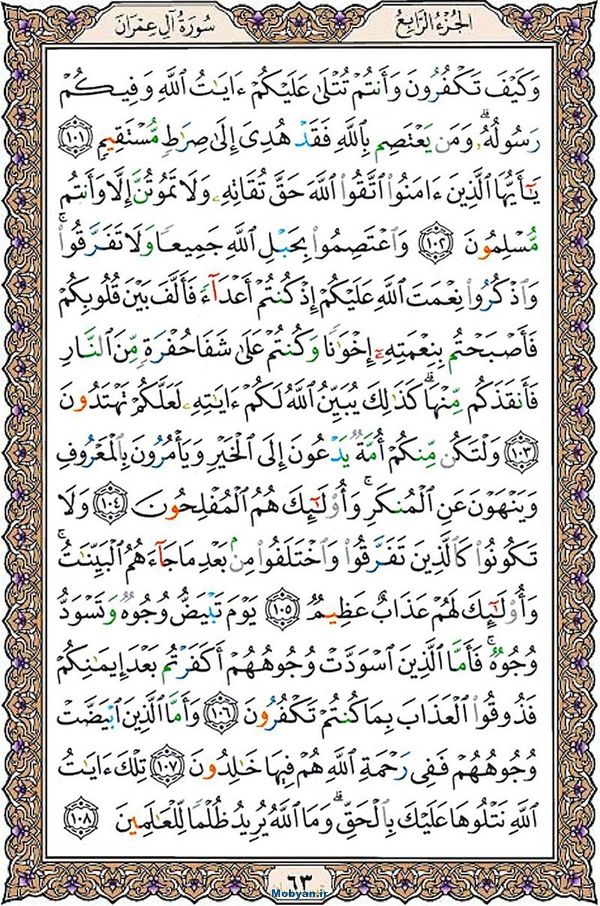 سُورَةُ آلِ عِمْرَانَ
الجُزْءُ الرَّابِعُ
وَكَيْفَ تَكْفُرُونَ وَأَنتُمْ تُتْلَىٰ عَلَيْكُمْ ءَايَـٰتُ ٱللَّهِ وَفِيكُمْ
رَسُولُهُۥ ۗ وَمَن يَعْتَصِم بِٱللَّهِ فَقَدْ هُدِىَ إِلَىٰ صِرَٰطٍ مُّسْتَقِيمٍ ١٠١
يَـٰٓأَيُّهَا ٱلَّذِينَ ءَامَنُوا۟ ٱتَّقُوا۟ ٱللَّهَ حَقَّ تُقَاتِهِۦ وَلَا تَمُوتُنَّ إِلَّا وَأَنتُم
مُّسْلِمُونَ ١٠٢ وَٱعْتَصِمُوا۟ بِحَبْلِ ٱللَّهِ جَمِيعًا وَلَا تَفَرَّقُوا۟ ۚ
وَٱذْكُرُوا۟ نِعْمَتَ ٱللَّهِ عَلَيْكُمْ إِذْ كُنتُمْ أَعْدَآءً فَأَلَّفَ بَيْنَ قُلُوبِكُمْ
فَأَصْبَحْتُم بِنِعْمَتِهِۦٓ إِخْوَٰنًا وَكُنتُمْ عَلَىٰ شَفَا حُفْرَةٍ مِّنَ ٱلنَّارِ
فَأَنقَذَكُم مِّنْهَا ۗ كَذَٰلِكَ يُبَيِّنُ ٱللَّهُ لَكُمْ ءَايَـٰتِهِۦ لَعَلَّكُمْ تَهْتَدُونَ
١٠٣ وَلْتَكُن مِّنكُمْ أُمَّةٌ يَدْعُونَ إِلَى ٱلْخَيْرِ وَيَأْمُرُونَ بِٱلْمَعْرُوفِ
وَيَنْهَوْنَ عَنِ ٱلْمُنكَرِ ۚ وَأُو۟لَـٰٓئِكَ هُمُ ٱلْمُفْلِحُونَ ١٠٤ وَلَا
تَكُونُوا۟ كَٱلَّذِينَ تَفَرَّقُوا۟ وَٱخْتَلَفُوا۟ مِنۢ بَعْدِ مَا جَآءَهُمُ ٱلْبَيِّنَـٰتُ ۚ
وَأُو۟لَـٰٓئِكَ لَهُمْ عَذَابٌ عَظِيمٌ ١٠٥ يَوْمَ تَبْيَضُّ وُجُوهٌ وَتَسْوَدُّ
وُجُوهٌ ۚ فَأَمَّا ٱلَّذِينَ ٱسْوَدَّتْ وُجُوهُهُمْ أَكَفَرْتُم بَعْدَ إِيمَـٰنِكُمْ
فَذُوقُوا۟ ٱلْعَذَابَ بِمَا كُنتُمْ تَكْفُرُونَ ١٠٦ وَأَمَّا ٱلَّذِينَ ٱبْيَضَّتْ
وُجُوهُهُمْ فَفِى رَحْمَةِ ٱللَّهِ هُمْ فِيهَا خَـٰلِدُونَ ١٠٧ تِلْكَ ءَايَـٰتُ
ٱللَّهِ نَتْلُوهَا عَلَيْكَ بِٱلْحَقِّ ۗ وَمَا ٱللَّهُ يُرِيدُ ظُلْمًا لِّلْعَـٰلَمِينَ ١٠٨
٦٣
Mobyan.ir